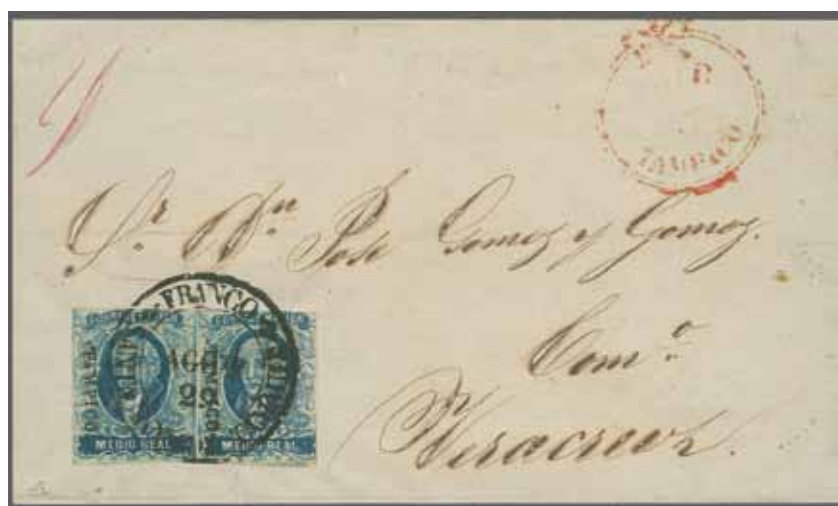 TAMPICO
Sr. Dn. José Gomez y Gomez.
Com.o
Veracruz.
FRANCO
AGO
22
TAMPICO
TAMPICO
MEDIO REAL
MEDIO REAL